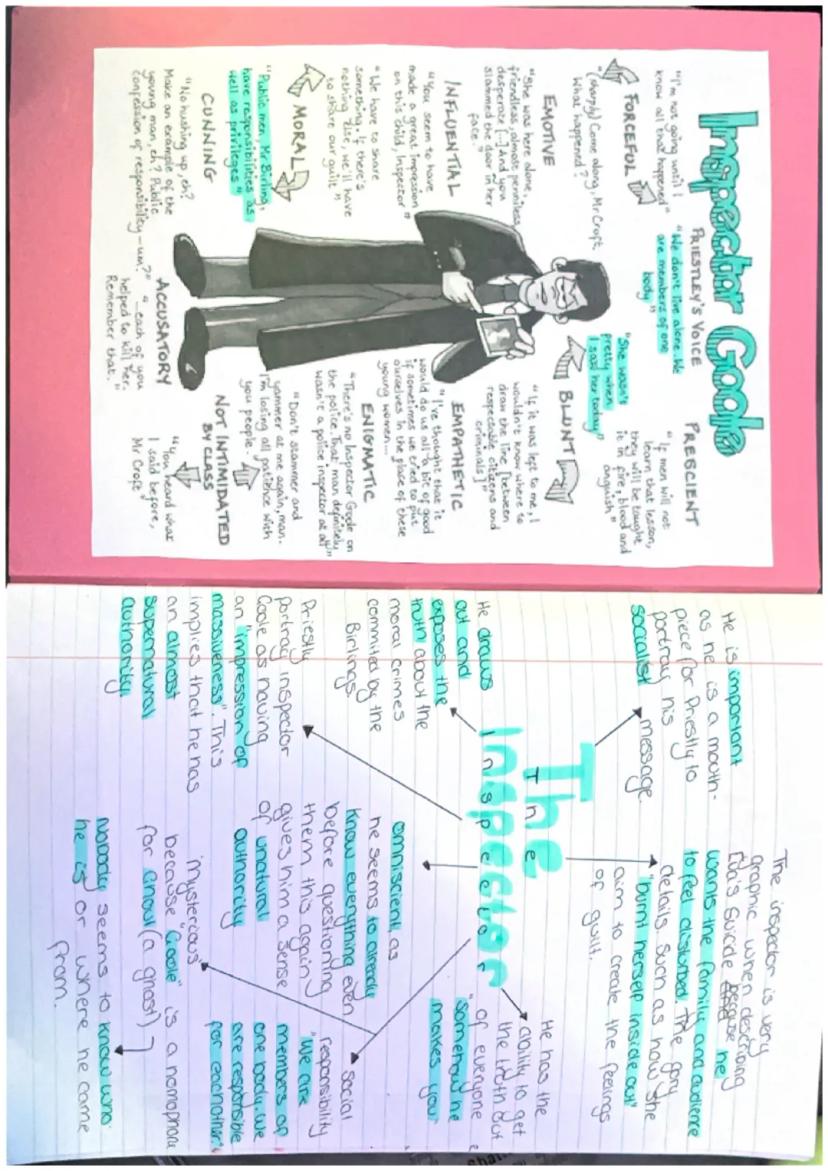 Inspector Goole
FORCEFUL
"I'm not going until I
know all that happened"
"(sharply) Come along, Mr Croft.
What happened?
PRIESTLEY'S VOICE
"We don't live alone. We
are members of one
body"
PRESCIENT
"If men will not
learn that lesson,
they will be taught
it in fire, blood and
anguish"
EMOTIVE
"She was here alone,
friendless, almost penniless,
desperate [...] And you
slammed the door in her
face."
BLUNT
"She wasn't
pretty when
I saw her today"
"If it was left to me, I
wouldn't know where to
draw the line [between
respectable citizens and
criminals]"
INFLUENTIAL
"You seem to have
made a great impression
on this child, Inspector"
EMPATHETIC
"I've thought that it
would do us all a bit of good
if sometimes we tried to put
ourselves in the place of these
young women...
MORAL
"We have to share
something. If there's
nothing else, we'll have
to share our guilt"
"Public men, Mr Birling,
have responsibilities as
well as privileges"
ENIGMATIC
"There's no Inspector Goole on
the police. That man definitely
wasn't a police inspector at all"
CUNNING
"No hushing up, eh?
Make an example of the
young man, eh? Public
confession of responsibility - um?"
ACCUSATORY
"...each of you
helped to kill her.
Remember that."
NOT INTIMIDATED
BY CLASS
"Don't stammer and
yammer at me again, man.
I'm losing all patience with
you people.
"You heard what
I said before,
Mr Croft
The
The
Inspector
Inspector
He is important
as he is a mouth-
piece for Priestly to
portray his
socialist message.
The inspector is very
graphic when describing
Eva's suicide because he
wants the family and audience
to feel disturbed. The gory
details such as how she
"burnt herself inside out"
aim to create the feelings
of guilt.
He draws
out and
exposes the
truth about the
moral crimes
commited by the
Birlings
He has the
ability to get
the truth out
of everyone
"somehow he
makes you"
omniscient, as
he seems to already
know everything even
before questioning
them this again
gives him a sense
of unatural
authority
Priestly
portray inspector
Goole as having
an "impression of
massiveness". This
implies that he has
an almost
supernatural
authority
social
responsibility
"We are
members of
one body. We
are responsible
for eachother"
'mysterious'
because "Goole" is a homophone
for Ghoul (a ghost)
Nobody seems to know who
he is or where he came
from.